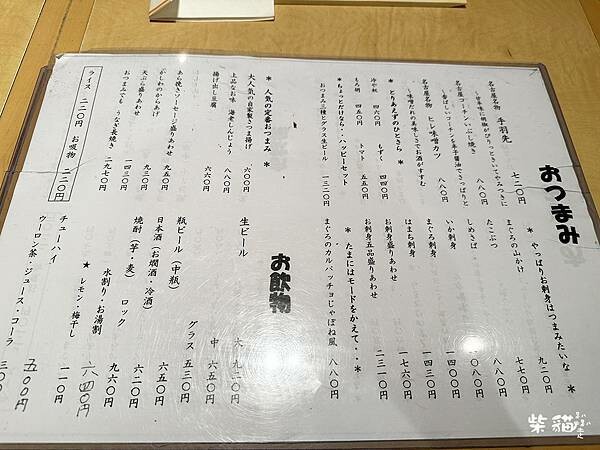 おつまみ
名古屋名物 手羽先 七二〇円
名古屋コーチンいぶし焼き 八八〇円
名古屋名物 ヒレ味噌カツ 八八〇円
＊とりあえずのひとさら＊
冷や奴 四六〇円 もずく 四四〇円
もろ胡 四五〇円 トマト 五五〇円
＊ちょっとだけなら・・ハッピーセット
おつまみ三種とグラス生ビール 一三二〇円
＊人気の定番おつまみ＊
大人気の自家製さつま揚げ 六〇〇円
上品なお味 海老しんじょう 八八〇円
揚げ出し豆腐 六六〇円
あら挽きソーセージ盛りあわせ 九五〇円
かしわのからあげ 九三〇円
天ぷら盛りあわせ 一四三〇円
おつまみでも うなぎ長焼き 二九七〇円
ライス 二二〇円 お吸物 二二〇円
＊やっぱりお刺身はつまみたいな＊
まぐろの山かけ 九二〇円
たこぶつ 七七〇円
しめさば 八八〇円
いか刺身 一〇八〇円
まぐろ刺身 一四〇〇円
はまち刺身 一四三〇円
お刺身盛りあわせ 一七六〇円
お刺身五品盛りあわせ 二三一〇円
＊たまにはモードをかえて・・＊
まぐろのカルパッチョじゃぽね風 八八〇円
お飲物
生ビール 大 九二〇円
中 六五〇円
グラス 五三〇円
瓶ビール（中瓶） 六五〇円
日本酒（お燗酒・冷酒） 六五〇円
焼酎（芋・麦） ロック 六二〇円
水割り・お湯割 九六〇円
チューハイ 六四〇円
★レモン・梅干し 一一〇円
ウーロン茶・ジュース・コーラ 五〇〇円
柴貓